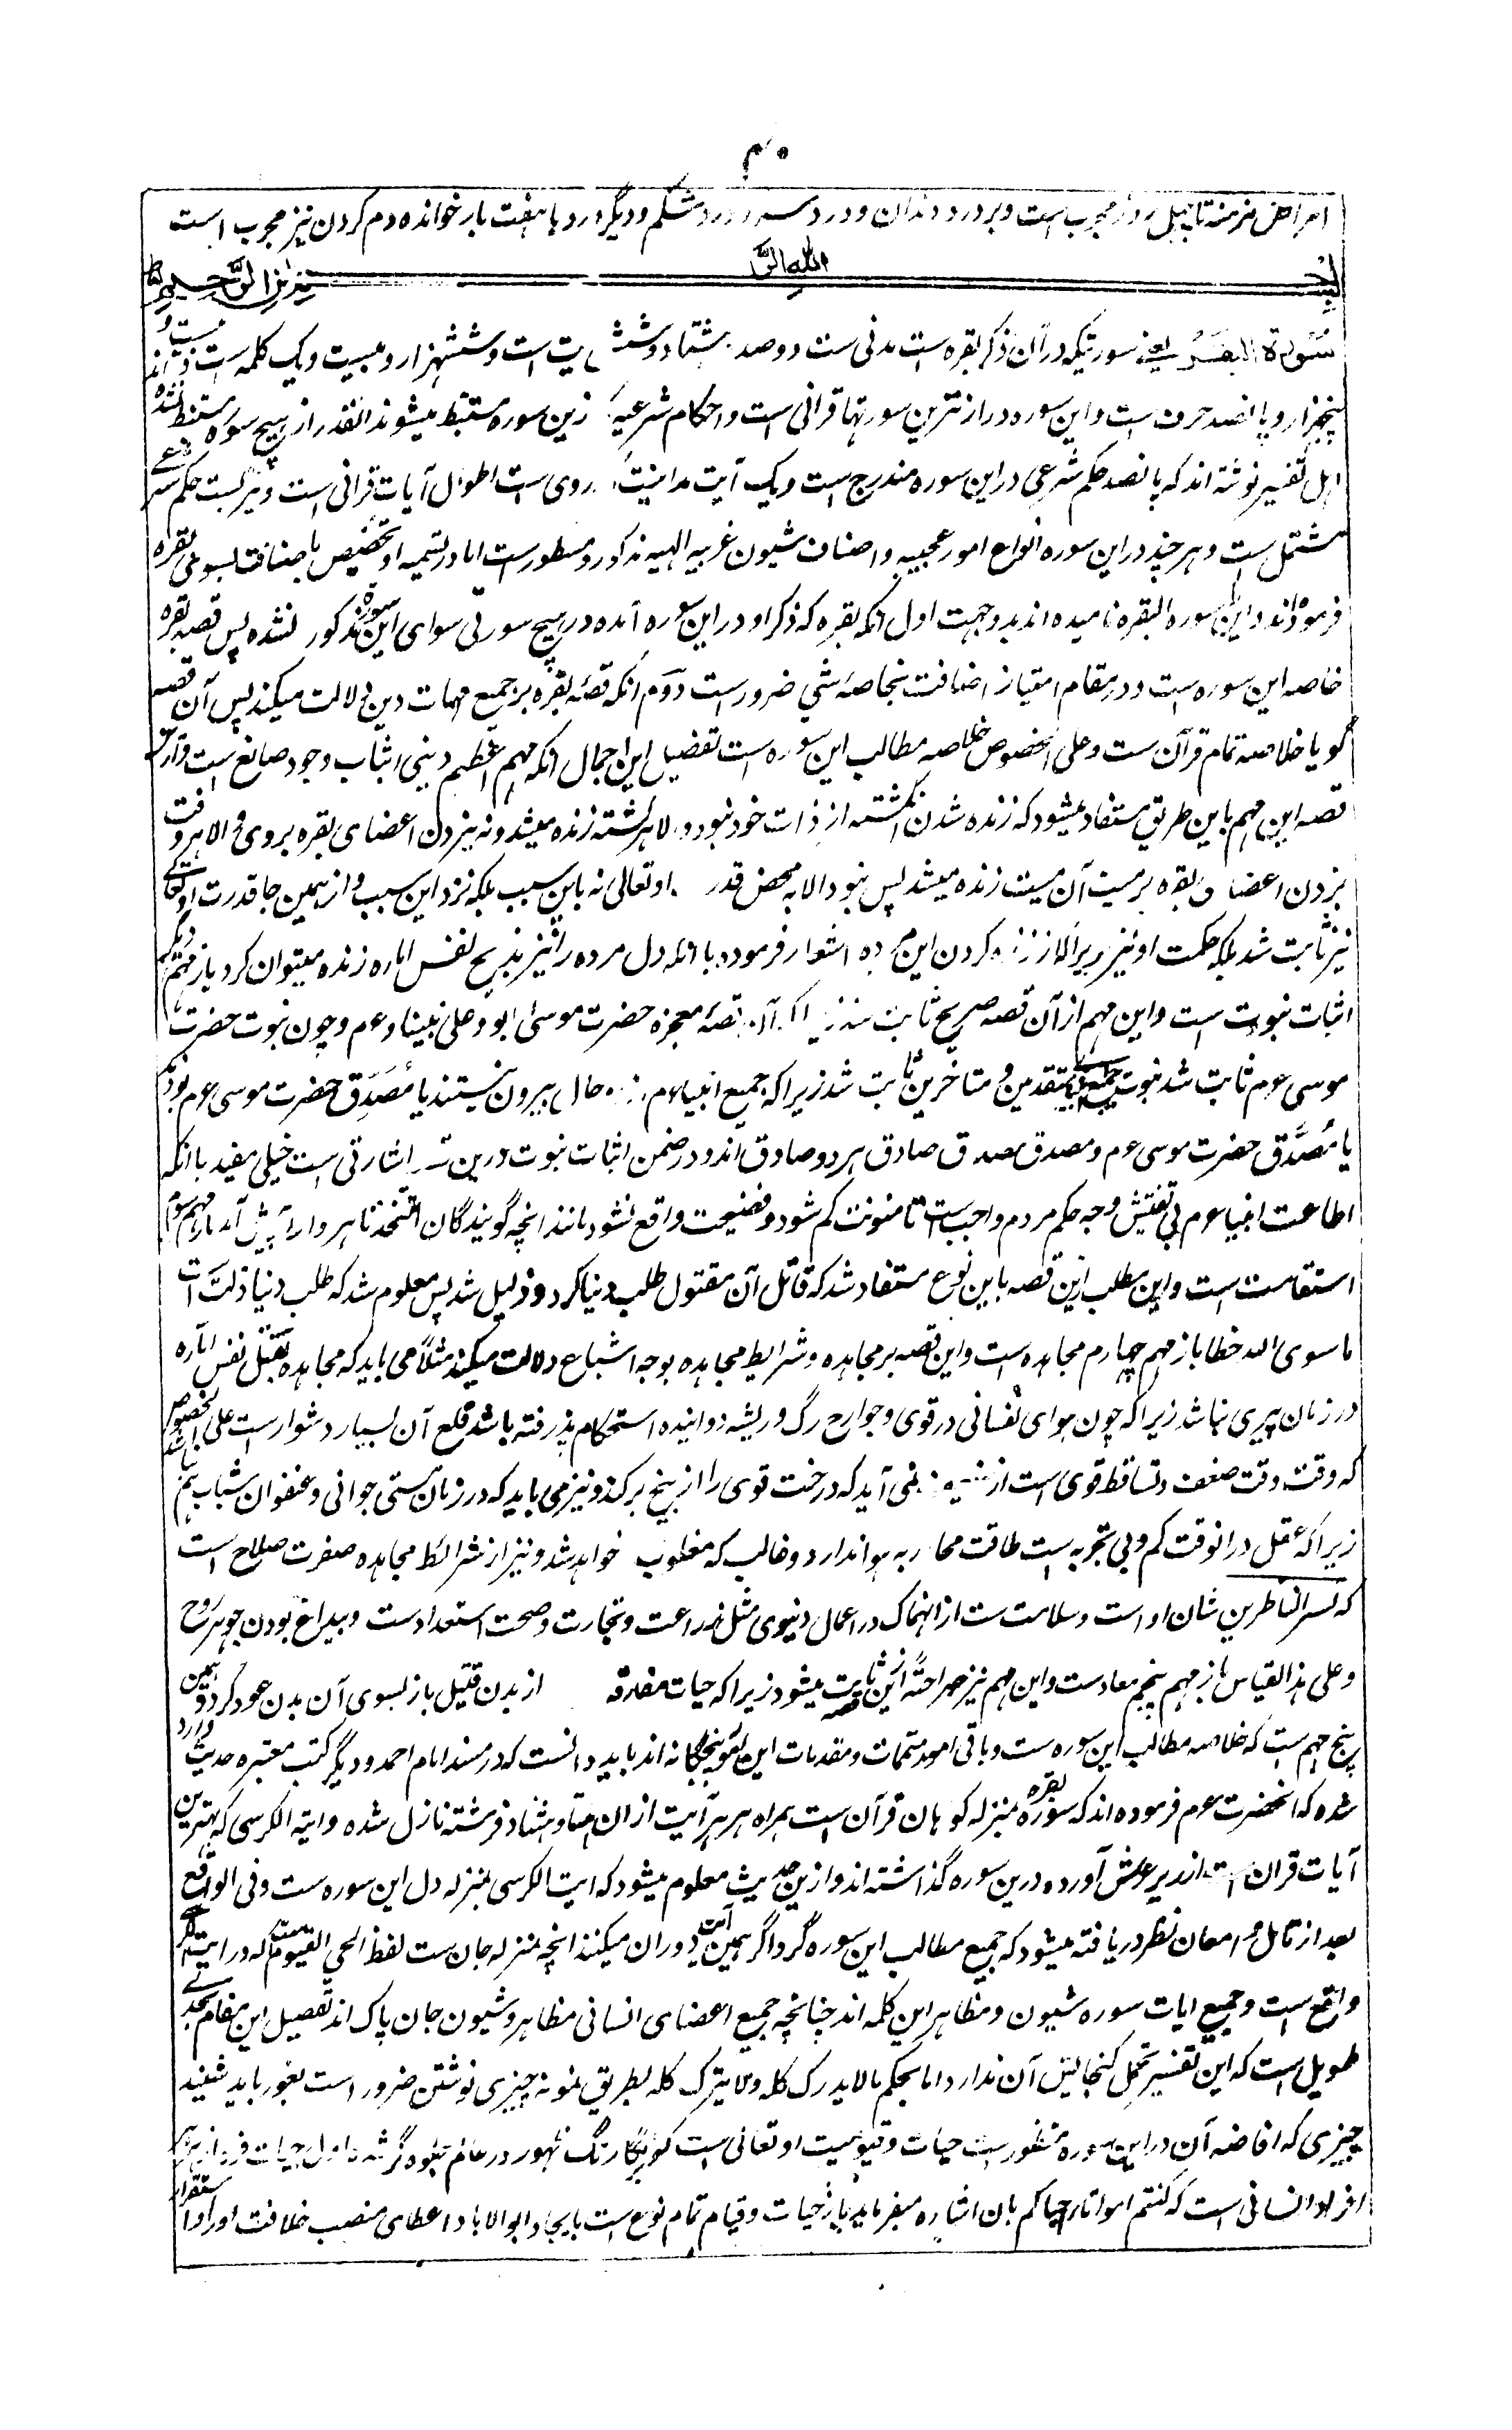 ۴۰
امراض مزمنه تا چهل روز مجرب است و بر درد دندان و درد سر و درد شکم و دیگر دردها هفت بار خوانده دم کردن نیز مجرب است
بسم الله الرحمن الرحیم
سورة البقرة یعنے سورتیکه در آن ذکر بقره است مدنی ست دو صد و هشتاد و شش آیت است و ششهزار و بیست و یک کلمه ست و بیست و
پنجهزار و پانصد حرف است و این سوره درازترین سورتها قرانی است و احکام شرعیه که زین سوره مستنبط میشوند آنقدر از هیچ سوره مستنبط نشده
اهل تفسیر نوشته اند که پانصد حکم شرعی در این سوره مندرج است و یک آیت مداینت اطول آیات قرانی است و بر بست حکم شرعے
مشتمل ست و هر چند در این سوره انواع امور عجیبه و اصناف شیون غریبه الهیه مذکور و مسطورست اما در تسمیه او تخصیص باضافت بسوی بقره
فرموده اند و این سوره البقره نامیده اند بدو جهت اول آنکه بقره که ذکر او در این سوره آمده در هیچ سورتی سوای این سوره مذکور نشده پس قصه بقره
خاصه این سوره ست و در مقام امتیاز اضافت بخاصه شی ضرورست دوم آنکه قصه بقره بر جمیع مهمات دین دلالت میکند پس آن قصه
گویا خلاصه تمام قرآن ست و علی الخصوص خلاصه مطالب این سوره ست تفصیل این اجمال آنکه مهم اعظم دینی اثبات وجود صانع است و از آن
قصه این مهم باین طریق مستفاد میشود که زنده شدن کشته از ذات خود نبود والا هر کشته زنده میشد و نه بزدن اعضای بقره بروی والا هر وقت
بزدن اعضای بقره بر میت آن میت زنده میشد پس نبود الا به محض قدرت او تعالی نه باین سبب بلکه نزد این سبب و از همین جا قدرت او تعالے
نیز ثابت شد بلکه حکمت او نیز زیراکه از زنده کردن این مرده اشعار فرموده بآنکه دل مرده را نیز بذبح نفس اماره زنده میتوان کرد باز مهم دیگر
اثبات نبوت است و این مهم از آن قصه صریح ثابت شد زیراکه آن قصه معجزه حضرت موسی ابود علی نبینا و ءم و چون نبوت حضرت
موسی ءم ثابت شد نبوت جمیع انبیای متقدمین و متاخرین ثابت شد زیراکه جمیع انبیا ءم از دو حال بیرون نیستند یا مُصَدِّق حضرت موسی ءم بودند
یا مُصَدَّق حضرت موسی ءم و مصدق مصدق صادق هر دو صادق اند و در ضمن اثبات نبوت درین قصه اشارتی است خیلی مفید بآنکه
اطاعت انبیا ءم بی تفتیش وجه حکم مردم واجب ست تا مئونت کم شود و فضیحت واقع نشود مانند آنچه گویندگان اتتخذنا هزوا را پیش آمد باز مهم سوم
استقامت است و این مطلب ازین قصه باین نوع مستفاد شد که قاتل آن مقتول طلب دنیا کرد و ذلیل شد پس معلوم شد که طلب دنیا ذلت است
ماسوی الله خطا باز مهم چهارم مجاهده ست و این قصه بر مجاهده و شرایط مجاهده بوجه اشباع دلالت میکند مثلاً می باید که مجاهده بقتل نفس اماره
در زمان پیری نباشد زیراکه چون هوای نفسانی در قوی و جوارح رگ و ریشه دوانیده استحکام پذیرفته باشد قلع آن بسیار دشوار ست علی الخصوص
که وقت وقت ضعف و تساقط قوی است از نمی آید که درخت قوی را از بیخ برکند و نیز می باید که در زمان مستی جوانی و عنفوان شباب هم نباشد
زیراکه عقل در انوقت کم و بی تجربه است طاقت محاربه هوا ندارد و غالب که مغلوب خواهد شد و نیز از شرائط مجاهده صفرت صلاح است
که تسر الناظرین شان او است و سلامت ست از انهماک در اعمال دنیوی مثل زراعت و تجارت و صحت استعداد ست و بیداغ بودن جوهر روح
و علی هذا القیاس باز مهم پنجم معاد ست و این مهم نیز صراحةً ازین قصه ثابت میشود زیراکه حیات مفارقه از بدن قتیل باز بسوی آن بدن عود کرد و همین
پنج مهم ست که خلاصه مطالب این سوره ست و باقی امور متممات و مقدمات این پنجگانه اند باید دانست که در مسند امام احمد و دیگر کتب معتبره حدیث وارد
شده که آنحضرت ءم فرموده اند که سوره بقره بمنزله کوهان قرآن است همراه هر هر آیت از ان هشتاد هشتاد فرشته نازل شده و آیة الکرسی که بهترین
آیات قران است از زیر عرش آورده درین سوره گذاشته اند و ازین حدیث معلوم میشود که آیت الکرسی بمنزله دل این سوره ست و فی الواقع
بعد از تامل و امعان نظر دریافته میشود که جمیع مطالب این سوره گرداگر همین آیت دوران میکنند انچه بمنزله جان ست لفظ الحی القیوم ست که در این آیت
واقع ست و جمیع آیات سوره شیون و مظاهر این کلمه اند چنانچه جمیع اعضای انسانی مظاهر و شیون جان پاک اند تفصیل این مقام بحدے
طویل است که این تفسیر تحمل گنجایش آن ندارد اما بحکم ما لا یدرک کله ولا یترک کله بطریق نمونه چیزی نوشتن ضرور است بغور باید شنید
چیزی که افاضه آن در این سوره منظور ست حیات و قیومیت او تعالی است که بیکار رنگ ظهور در عالم جلوه گر شد اول حیات فردا
افراد انسانی است که کنتم امواتا فاحیاکم بان اشاره میفرماید باز حیات و قیام تمام نوع ست بایجاد ابو الاباء و اعطای منصب خلافت او را و استقرار